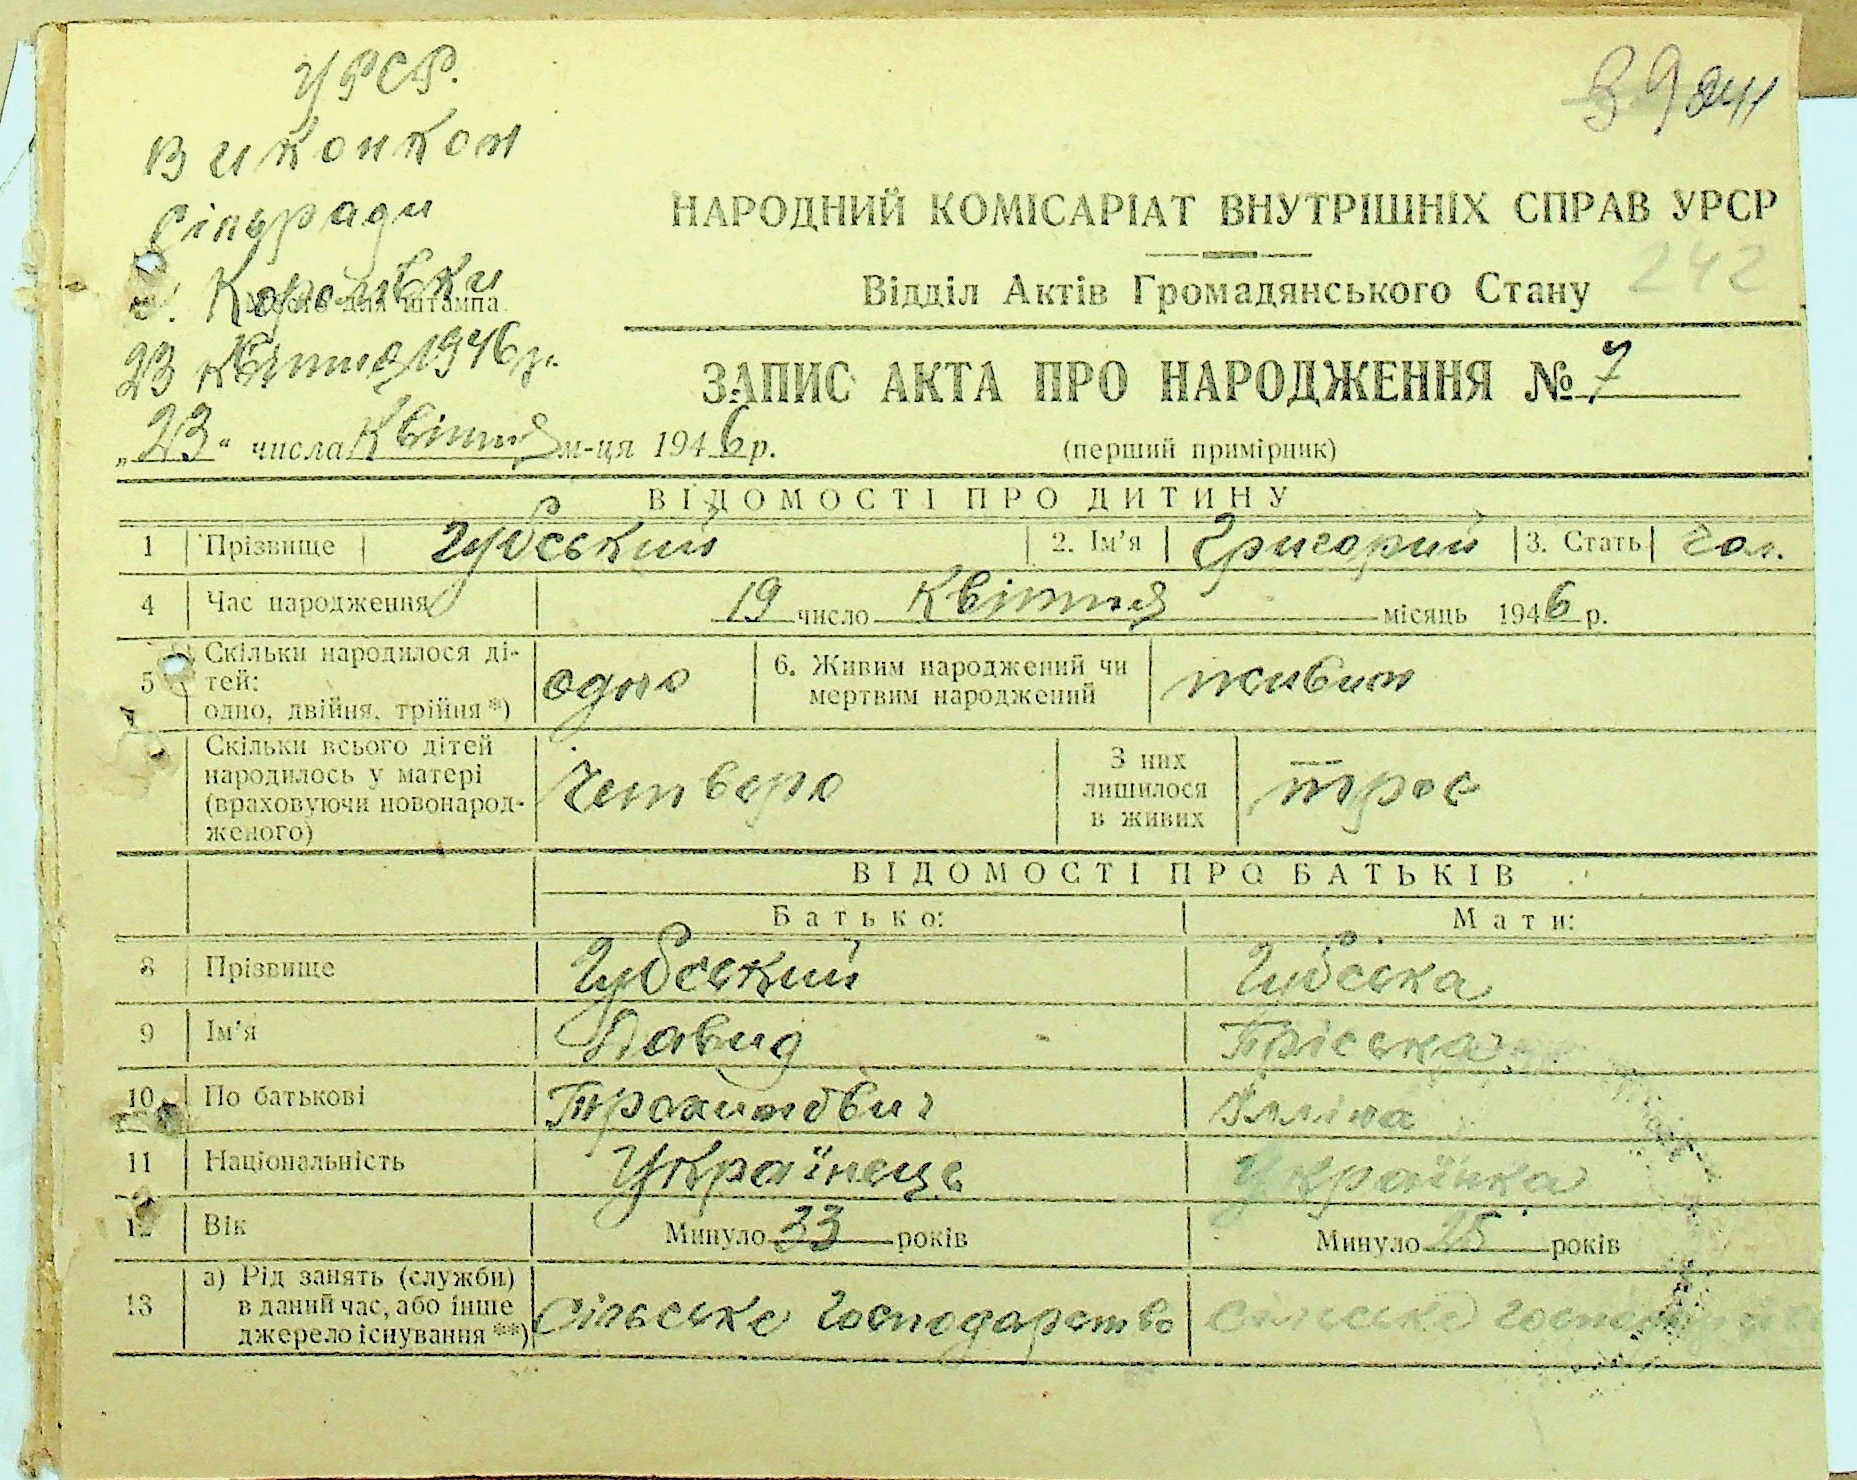 УРСР.
Виконком
Сільради
с. Королівки
Місце для штампа
23 квітня 1946 р.
39
242
НАРОДНИЙ КОМІСАРІАТ ВНУТРІШНІХ СПРАВ УРСР
Відділ Актів Громадянського Стану
ЗАПИС АКТА ПРО НАРОДЖЕННЯ № 7
„23“ числа Квітня м-ця 1946 р. (перший примірник)
ВІДОМОСТІ ПРО ДИТИНУ
1 Прізвище Чубський 2. Ім'я Григорий 3. Стать Чол.
4 Час народження 19 число Квітня місяць 1946 р.
5 Скільки народилося ді-
тей:
одно, двійня, трійня *) одно 6. Живим народжений чи
мертвим народжений живим
Скільки всього дітей
народилось у матері
(враховуючи новонарод-
женого) Четверо З них
лишилося
в живих троє
ВІДОМОСТІ ПРО БАТЬКІВ
Батько: Мати:
8 Прізвище Чубський Чубська
9 Ім'я Давид Пріська
10 По батькові Трохимович Ілліна
11 Національність Українець Українка
12 Вік Минуло 33 років Минуло 25 років
13 а) Рід занять (служби)
в даний час, або інше
джерело існування **) Сільське господарство Сільське господарство